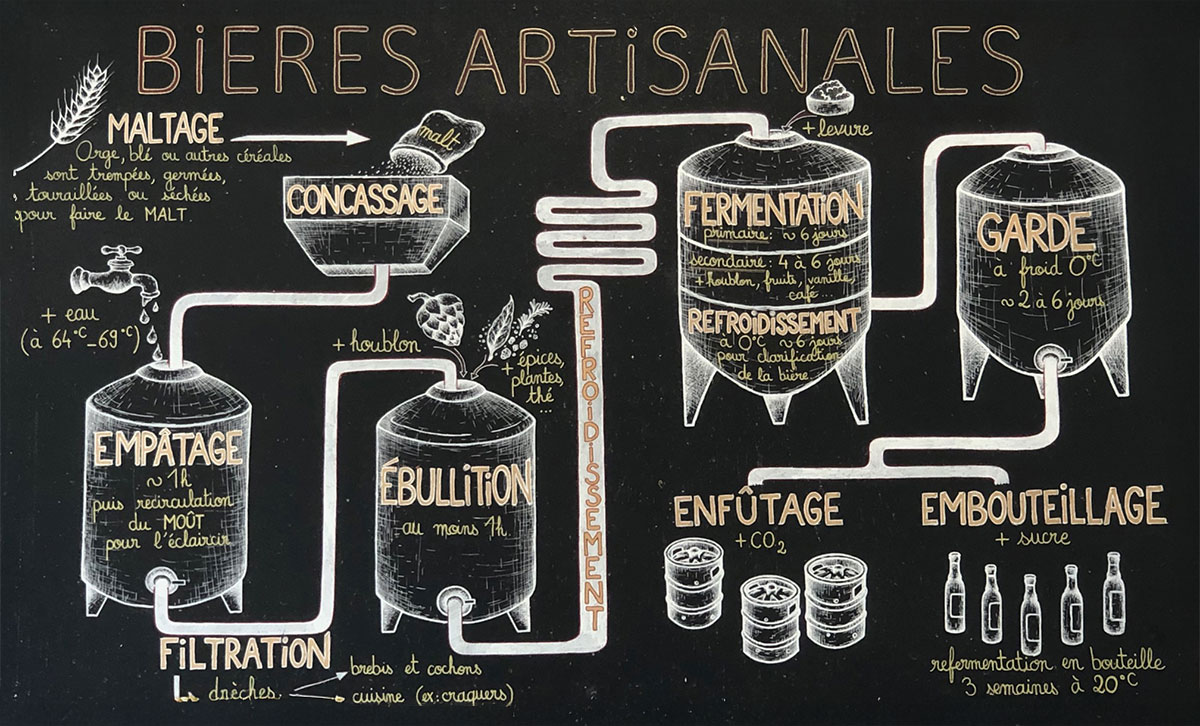 BIERES ARTISANALES
MALTAGE
Orge, blé ou autres céréales
sont trempées, germées,
touraillées ou séchées
pour faire le MALT.
malt
CONCASSAGE
+ eau
(à 64°C_69°C)
EMPÂTAGE
~ 1h
puis recirculation
du MOÛT
pour l'éclaircir
FILTRATION
drêches
brebis et cochons
cuisine (ex: craquers)
+ houblon
+ épices,
plantes,
thé
...
ÉBULLITION
au moins 1h.
REFROIDISSEMENT
+ levure
FERMENTATION
primaire: ~ 6 jours
secondaire: 4 à 6 jours
+ houblon, fruits, vanille,
café...
REFROIDISSEMENT
à 0°C ~ 6 jours
pour clarification
de la bière.
GARDE
à froid 0°C
~ 2 à 6 jours
ENFÛTAGE
+ CO2
EMBOUTEILLAGE
+ sucre
refermentation en bouteille
3 semaines à 20°C